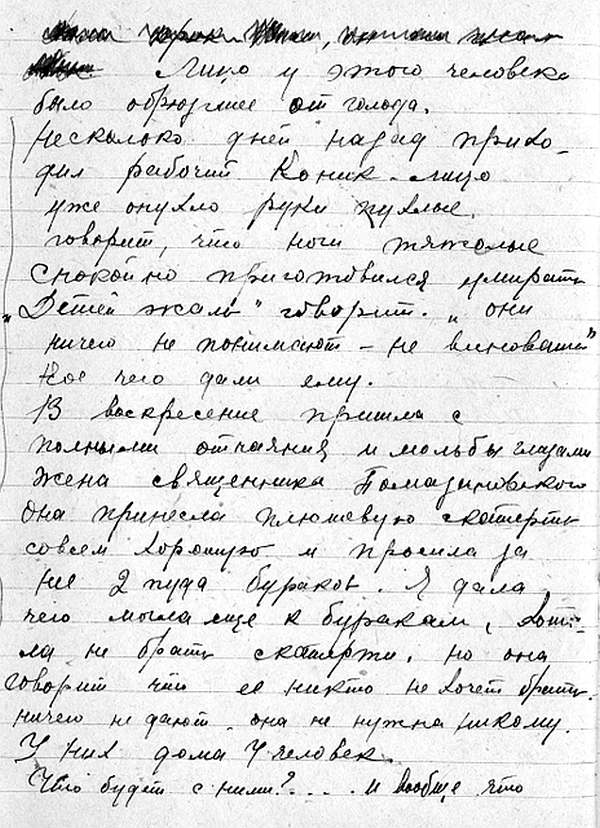 Лицо у этого человека
было обрюзгшее от голода.
Несколько дней назад прихо-
дил рабочий Коник - лицо
уже опухло руки пухлые.
говорит, что ноги тяжолые
спокойно приготовился умирать
"Детей жаль" говорит. "они
ничего не понимают - не виноваты"
Кое чего дали ему.
В воскресение пришла с
полными отчаяния и мольбы глазами
жена священника
Она принесла плюшевую скатерть
совсем хорошую и просила за
неё 2 пуда бураков. Я дала
чего могла еще к буракам, хоте-
ла не брать скатерти, но она
говорит что ее никто не хочет брать
ничего не дают она не нужна никому.
У них дома 4 человек.
Что будет с ними?.... и вообще что